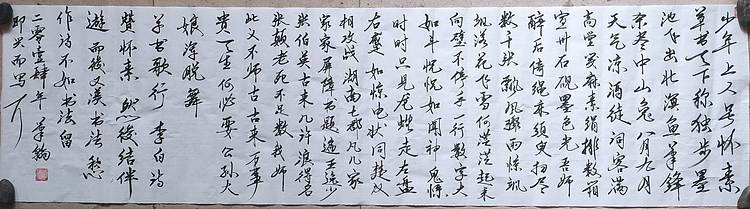 少年上人号怀素
草书天下称独步墨
池飞出北溟鱼笔锋
杀尽中山兔八月九月
天气凉酒徒词客满
高堂笺麻素绢排数箱
宣州石砚墨色光吾师
醉后倚绳床须臾扫尽
数千张飘风骤雨惊飒
飒落花飞雪何茫茫起来
向壁不停手一行数字大
如斗恍恍如闻神鬼惊
时时只见龙蛇走左盘
右蹙如惊电状同楚汉
相攻战湖南七郡凡几家
家家屏障书题遍王逸少
张伯英古来几许浪得名
张颠老死不足数我师
此义不师古古来万事
贵天生何必要公孙大
娘浑脱舞
草书歌行 李伯诗
赞怀素 然後结伴
遊 而後又 书法
作诗不如书法留
二零壹肆年 笔翰
即兴而写